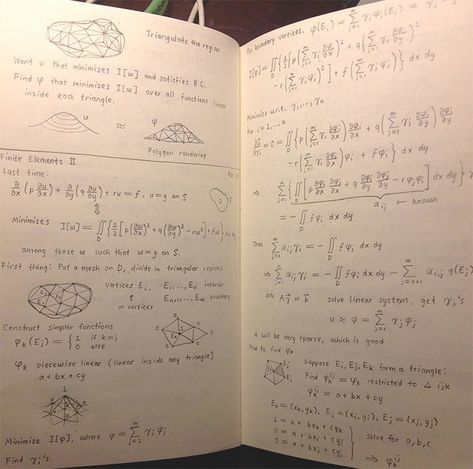 Triangulate the region
Want u that minimizes I[w] and satisfies B.C.
Find φ that minimizes I[w] over all functions linear
inside each triangle.
u ≈ φ
D
Polygon rendering
Finite Elements II
Last time:
∂/∂x (p ∂u/∂x) + ∂/∂y (q ∂u/∂y) + ru = f, u=g on S
D
Minimizes I[w] = ∬_D {½[p(∂w/∂x)² + q(∂w/∂y)² - rw²] + fw} dx dy
among those w such that w=g on S.
First thing: Put a mesh on D, divide in triangular regions
vertices E₁, ..., Eₙ interior
Eₙ₊₁, ..., Eₘ boundary
m vertices
Construct simpler functions
φₖ(Eⱼ) = { 1 if k=j
0 else
φₖ piecewise linear (linear inside any triangle)
a + bx + cy
Minimize I[φ], where φ = Σ_{j=1}^m γⱼ φⱼ
Find γⱼ's.
For boundary vertices, φ(Eᵢ) = Σ_{j=1}^m γⱼ φⱼ(Eᵢ) = γᵢ
I[φ] = ∬_D {½[p(Σ_{j=1}^m γⱼ ∂φⱼ/∂x)² + q(Σ_{j=1}^m γⱼ ∂φⱼ/∂y)²
- r(Σ_{j=1}^m γⱼ φⱼ)²] + f(Σ_{j=1}^m γⱼ φⱼ)} dx dy
Minimize wrt. γ₁, ..., γₙ
For i = 1, ... n
∂I/∂γᵢ = 0 = ∬_D {p Σ_{j=1}^m γⱼ ∂φⱼ/∂x ∂φᵢ/∂x + q Σ_{j=1}^m γⱼ ∂φⱼ/∂y ∂φᵢ/∂y
- r(Σ_{j=1}^m γⱼ φⱼ) φᵢ + fφᵢ} dx dy
⇒ Σ_{j=1}^m {∬_D [p ∂φᵢ/∂x ∂φⱼ/∂x + q ∂φᵢ/∂y ∂φⱼ/∂y - rφᵢφⱼ] dx dy} γⱼ
= -∬_D fφᵢ dx dy
αᵢⱼ ← known
Then Σ_{j=1}^m αᵢⱼ γⱼ = -∬_D fφᵢ dx dy
⇒ Σ_{j=1}^n αᵢⱼ γⱼ = -∬_D fφᵢ dx dy - Σ_{j=n+1}^m αᵢ,ⱼ g(Eⱼ)
or Aγ⃗ = b⃗ solve linear system, get γⱼ's
u ≈ φ = Σ_{j=1}^m γⱼ φⱼ
A will be very sparse, which is good
How to find φₖ
Suppose Eᵢ, Eⱼ, Eₖ form a triangle:
Find φₖ = φₖ restricted to Δ ijk
= a + bx + cy
Eₖ = (xₖ, yₖ), Eᵢ = (xᵢ, yᵢ), Eⱼ = (xⱼ, yⱼ)
1 = a + bxₖ + cyₖ
0 = a + bxᵢ + cyᵢ
0 = a + bxⱼ + cyⱼ
solve for a, b, c